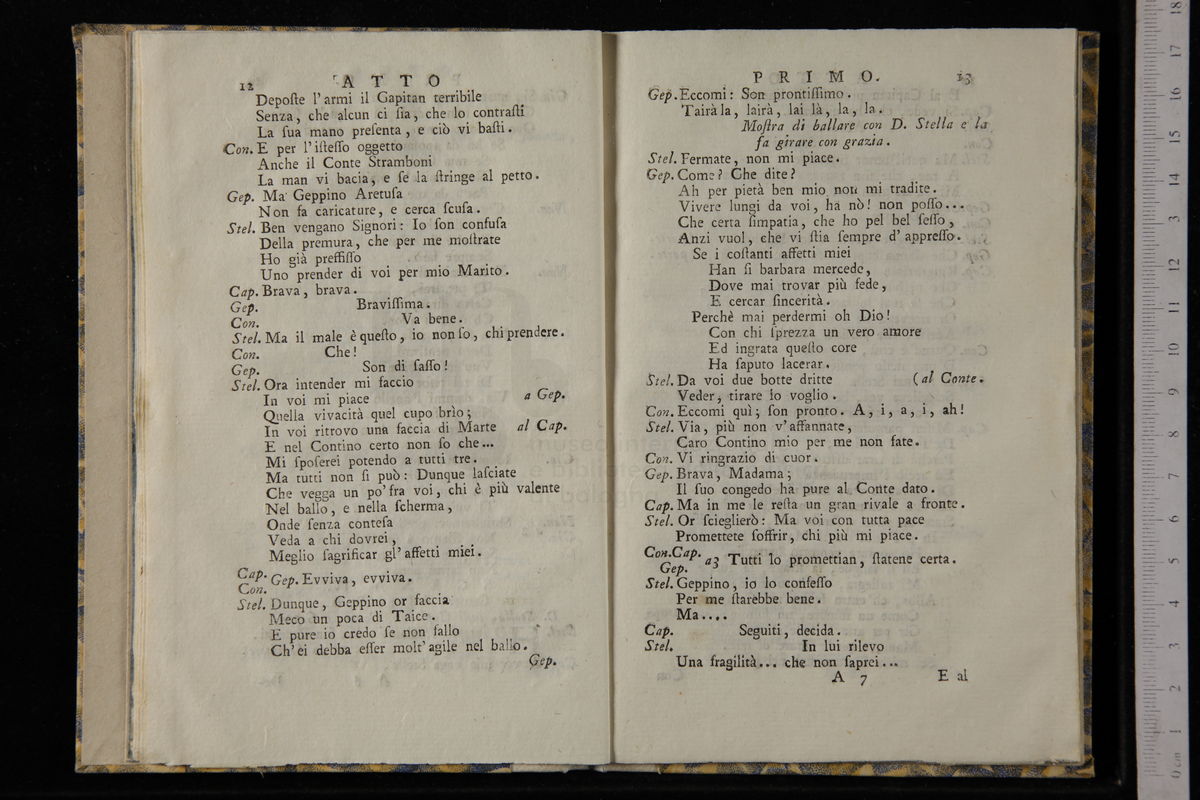 12 ATTO
Depoſte l'armi il Gapitan terribile
Senza, che alcun ci ſia, che lo contraſti
La ſua mano preſenta, e ciò vi baſti.
Con. E per l'iſteſſo oggetto
Anche il Conte Stramboni
La man vi bacia, e ſe la ſtringe al petto.
Gep. Ma Geppino Aretuſa
Non fa caricature, e cerca ſcuſa.
Stel. Ben vengano Signori: Io ſon confuſa
Della premura, che per me moſtrate
Ho già preffiſſo
Uno prender di voi per mio Marito.
Cap. Brava, brava.
Gep. Braviſſima.
Con. Va bene.
Stel. Ma il male è queſto, io non ſo, chi prendere.
Con. Che!
Gep. Son di ſaſſo!
Stel. Ora intender mi faccio
In voi mi piace a Gep.
Quella vivacità quel cupo brìo;
In voi ritrovo una faccia di Marte al Cap.
E nel Contino certo non ſo che...
Mi ſpoſerei potendo a tutti tre.
Ma tutti non ſi può: Dunque laſciate
Che vegga un po' fra voi, chi è più valente
Nel ballo, e nella ſcherma,
Onde ſenza conteſa
Veda a chi dovrei,
Meglio ſagrificar gl' affetti miei.
Cap. Gep. Evviva, evviva.
Con.
Stel. Dunque, Geppino or faccia
Meco un poca di Taice.
E pure io credo ſe non fallo
Ch' ei debba eſſer molt' agile nel ballo.
Gep.
PRIMO. 13
Gep. Eccomi: Son prontiſſimo.
Tairà la, lairà, lai là, la, la.
Moſtra di ballare con D. Stella e la
fa girare con grazia.
Stel. Fermate, non mi piace.
Gep. Come? Che dite?
Ah per pietà ben mio non mi tradite.
Vivere lungi da voi, ha nò! non poſſo...
Che certa ſimpatia, che ho pel bel ſeſſo,
Anzi vuol, che vi ſtia ſempre d' appreſſo.
Se i coſtanti affetti miei
Han ſi barbara mercede,
Dove mai trovar più fede,
E cercar ſincerità.
Perchè mai perdermi oh Dio!
Con chi ſprezza un vero amore
Ed ingrata queſto core
Ha ſaputo lacerar.
Stel. Da voi due botte dritte (al Conte.
Veder, tirare io voglio.
Con. Eccomi quì; ſon pronto. A, i, a, i, ah!
Stel. Via, più non v' affannate,
Caro Contino mio per me non fate.
Con. Vi ringrazio di cuor.
Gep. Brava, Madama;
Il ſuo congedo ha pure al Conte dato.
Cap. Ma in me le reſta un gran rivale a fronte.
Stel. Or ſcieglierò: Ma voi con tutta pace
Promettete ſoffrir, chi più mi piace.
Con. Cap. a3 Tutti lo promettian, ſtatene certa.
Gep.
Stel. Geppino, io lo confeſſo
Per me ſtarebbe bene.
Ma....
Cap. Seguiti, decida.
Stel. In lui rilevo
Una fragilità... che non ſaprei...
A 7 E al